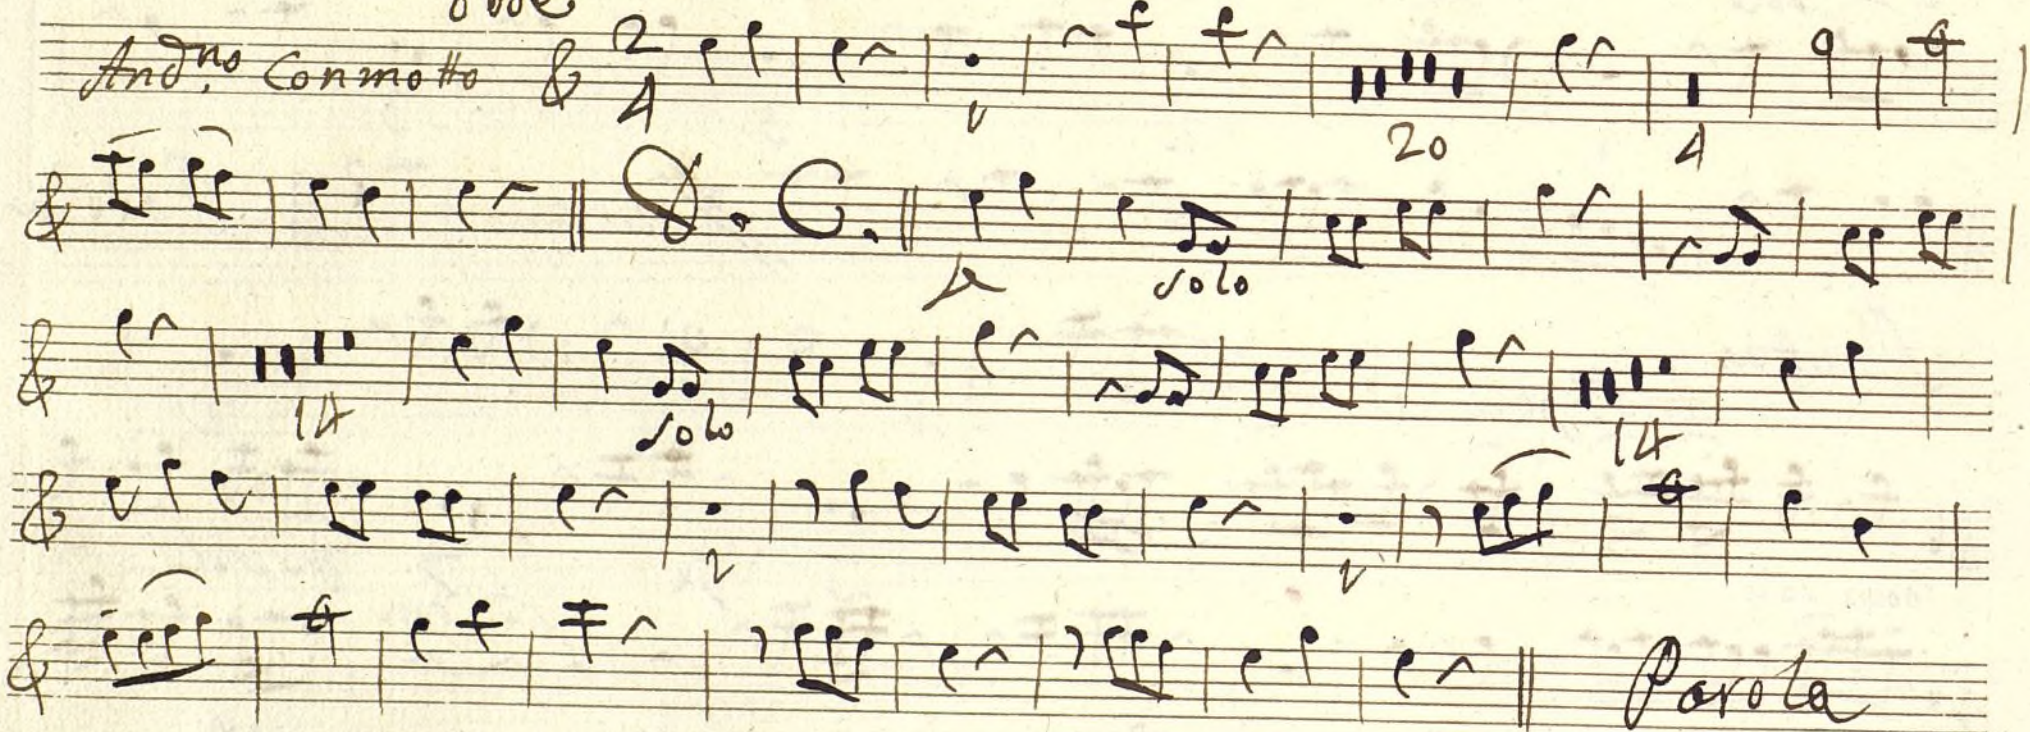 oboe
And.no Con motto 2 4
20 4
D. C.
A solo
14 solo 14
2 2
Parola